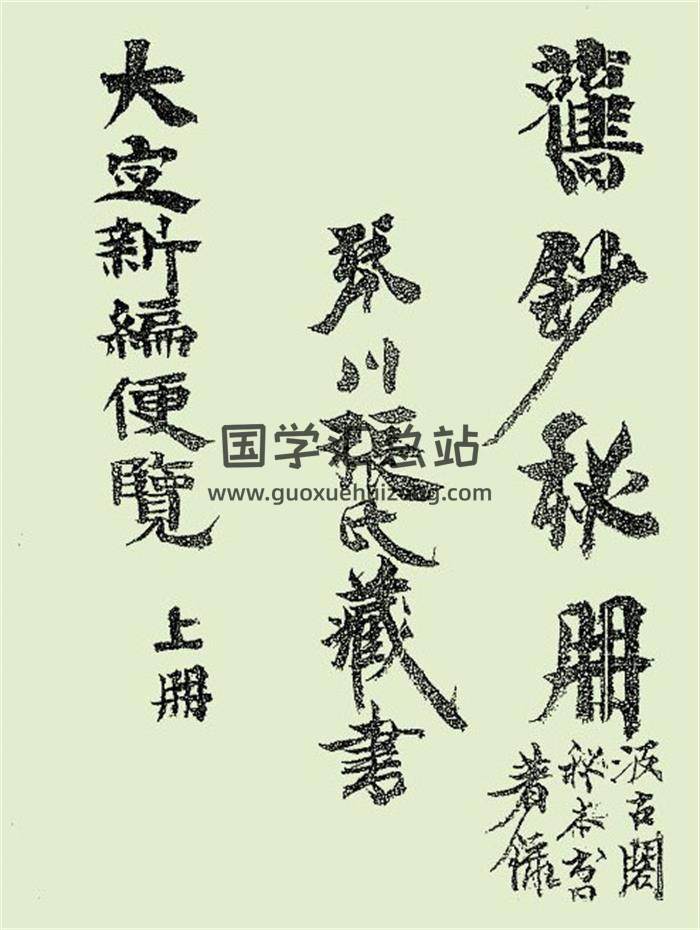 舊鈔秘冊
汲古閣
秘本書
著録
琴川張氏藏書
大定新編便覽 上冊
国学汇总站
www.guoxuehuizong.com